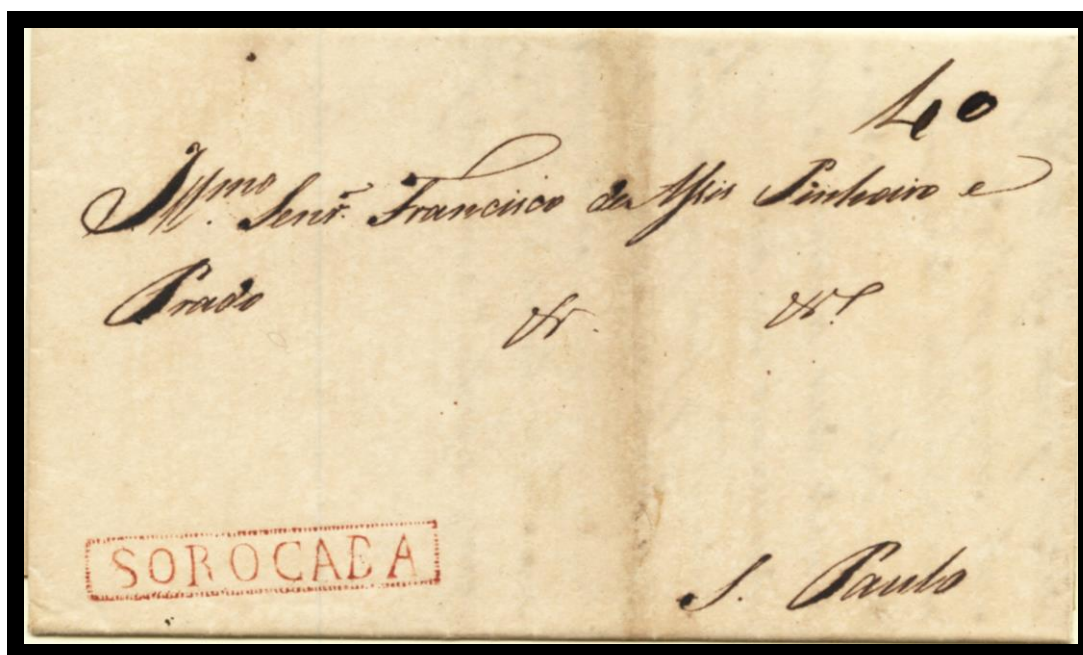 40
Illmo. Senr. Francisco de Assis Pinheiro e
Prado &. &.
SOROCABA
S. Paulo